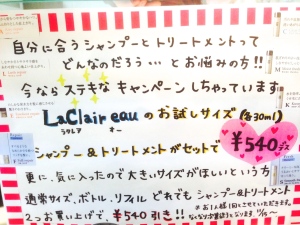 自分に合うシャンプーとトリートメントって
どんなのだろう…とお悩みの方!!
今ならステキなキャンペーンしちゃっています
LaClair eau のお試しサイズ(各30ml)
ラクレア オー
シャンプー&トリートメントがセットで
¥540
更に、気に入ったので大きいサイズがほしいという方
通常サイズ、ボトル、リフィル どれでも シャンプー&トリートメント
2つお買い上げで、¥540引き!!
※お1人様1回とさせていただきます。